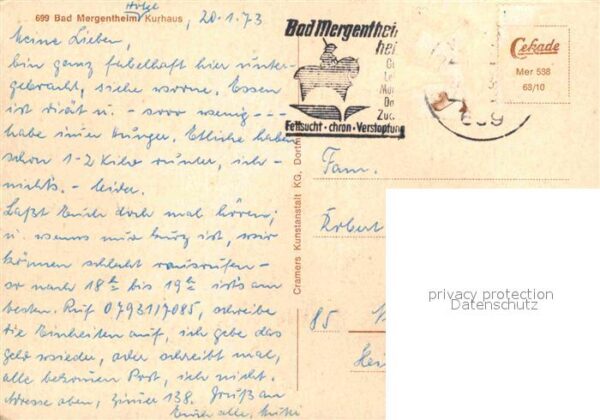 699 Bad Mergentheim Kurhaus, 20.1.73
Meine Lieben,
bin ganz fabelhaft hier unter-
gebracht, siehe vorne. Essen
ist Diät u. - sooo wenig ---
habe immer Hunger. Etliche haben
schon 1-2 Kilo runter, ich -
nichts. - leider.
Laßt Euch doch mal hören;
u. wenns nur kurz ist, wir
können schlecht rausrufen -
so nach 18 h bis 19 h ists am
besten. Ruf 07931/7085, schreibe
die Einheiten auf, ich gebe das
Geld wieder, oder schreibt mal,
alle bekommen Post, ich nicht.
Adresse oben, Zimmer 138. Gruß an
Euch alle,
Bad Mergenthei
hei
Fettsucht · chron · Verstopfung
699
Cekade
Mer 538
63/10
Cramers Kunstanstalt KG, Dortm
Fam.
Robert
85
privacy protection
Datenschutz